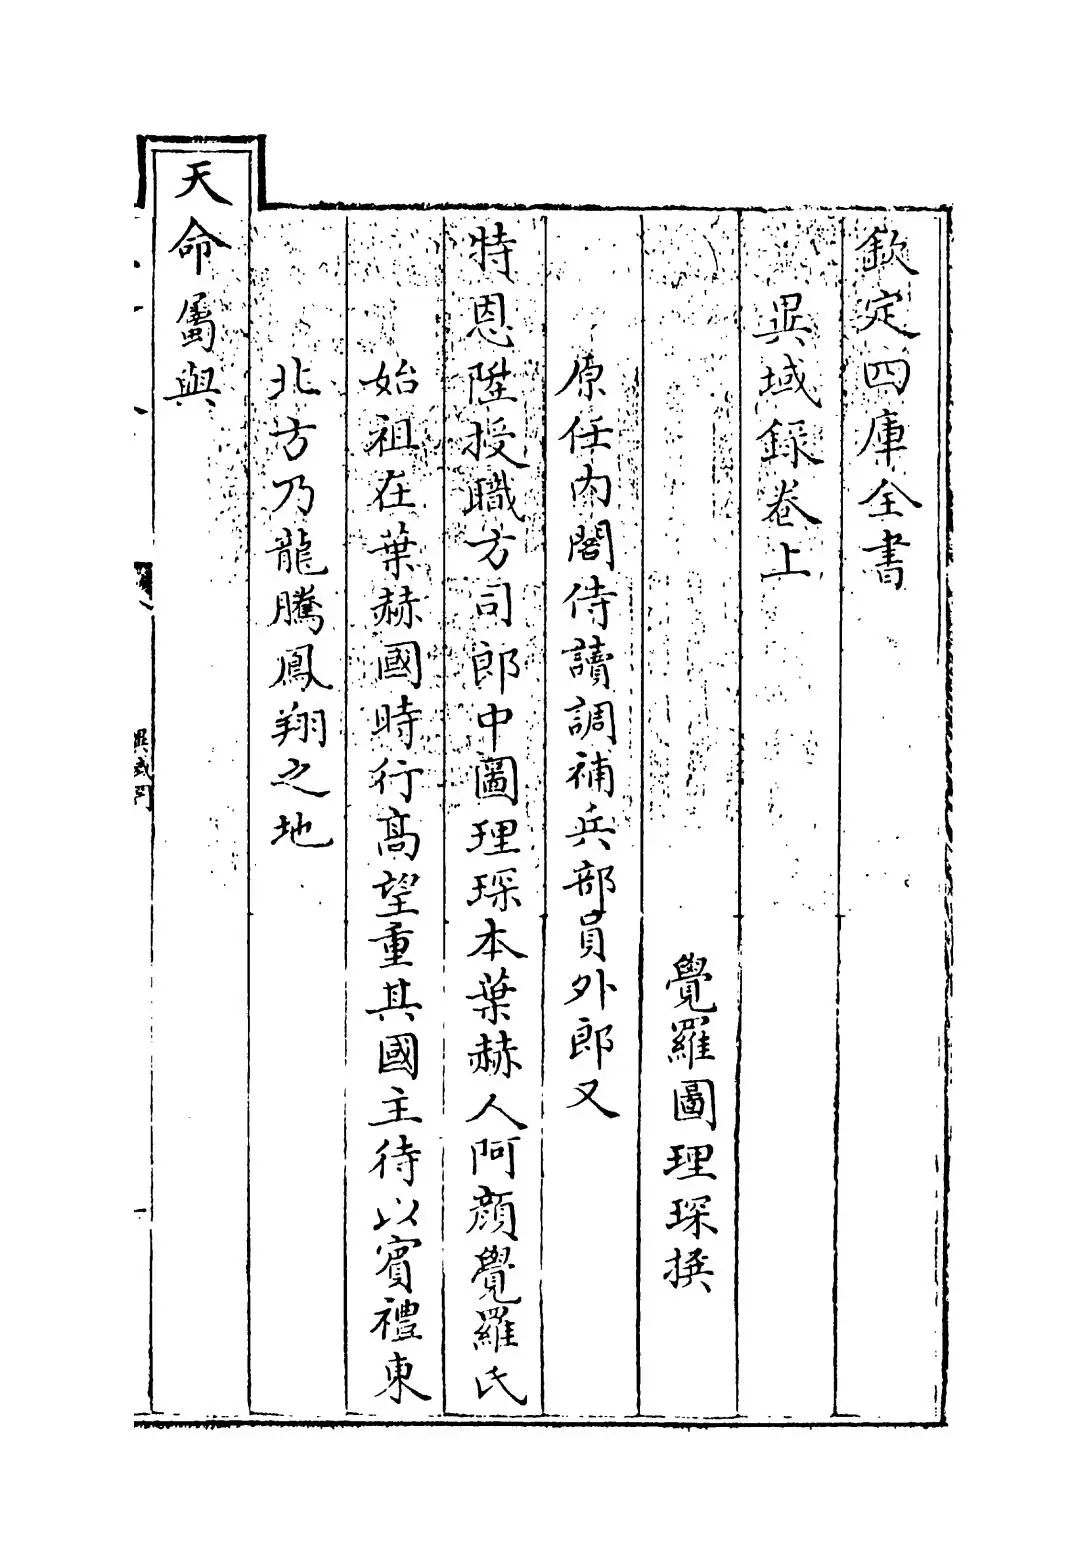 欽定四庫全書
異域録卷上
覺羅圖理琛撰
原任内閣侍讀調補兵部員外郎又
特恩陞授職方司郎中圖理琛本葉赫人阿顔覺羅氏
始祖在葉赫國時行髙望重其國主待以賓禮東
北方乃龍騰鳳翔之地
天命屬與